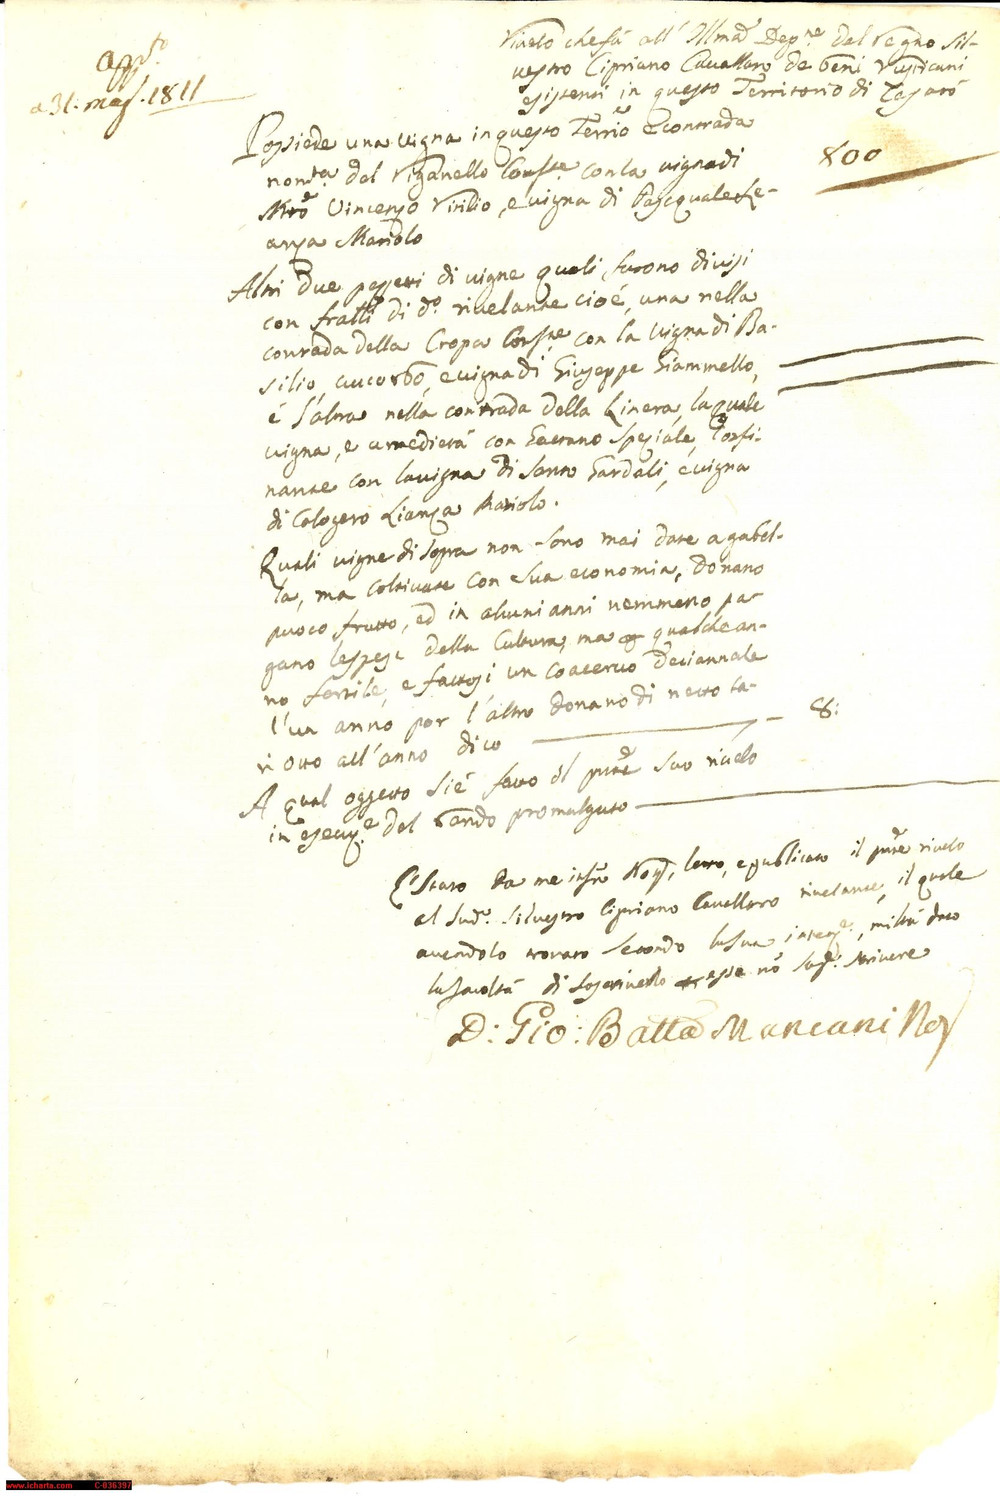 app.to
a 31: mag. 1811
Rivelo che fà all' Illma Dep.ne del regno Sil-
vestro Cipriano Cavallaro de beni rusticani
esistenti in questo Territorio di Cesarò
Possiede una vigna in questo Terrio e contrada
nom.ta del Viganello Conf.te con la vigna di
Mro Vincenzo Virilio, e vigna di Pascquale Le-
anza Mariolo
800
Altri due pezzetti di vigne quali furono divisi
con fratti di do. rivelante cioè, una nella
contrada della Cropa Conf.te con la vigna di Ba-
silio, e vigna di Giuseppe Giammello,
é l'altra nella contrada della Linera, la quale
vigna, e a medietà con Gaetano Speziale, Confi-
nante con la vigna di Santo Gardali, e vigna
di Calogero Lianza Mariolo.
Quali vigne di sopra non sono mai date a gabel-
la, ma coltivate con sua economia, donano
puoco frutto, ed in alcuni anni nemmeno pa-
gano le spese della Cultura, ma qualche an-
no fertile, e fattosi un coacervo deciannale
l'un anno per l'altro donano di netto ta-
ri otto all'anno dico
8:
A qual oggetto si é fatto il pnte suo rivelo
in esecuz.e del bando promulgato
E' stato da me infrto Not, letto, e publicato il pnte rivelo
al sud.o Silvestro Cipriano Cavallaro rivelante, il quale
avendolo trovato secondo la sua intenz.e, mi hà dato
la facoltà di soscriverlo esso nò sap. scrivere
D: Gio: Batta Mancani Not
www.icharta.com C-036397